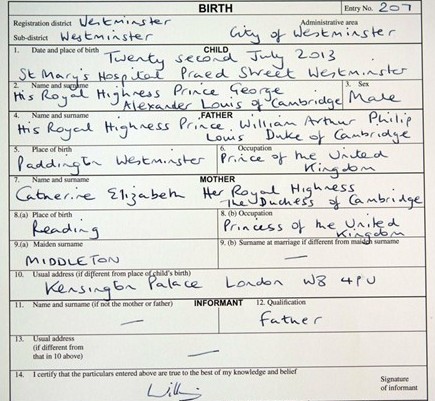 BIRTH
Entry No. 207
Registration district Westminster
Administrative area
Sub-district Westminster City of Westminster
1. Date and place of birth CHILD
Twenty second July 2013
St Mary's Hospital Praed Street Westminster
2. Name and surname 3. Sex
His Royal Highness Prince George
Alexander Louis of Cambridge Male
4. Name and surname FATHER
His Royal Highness Prince William Arthur Philip
Louis Duke of Cambridge
5. Place of birth 6. Occupation
Paddington Westminster Prince of the United
Kingdom
7. Name and surname MOTHER
Catherine Elizabeth Her Royal Highness
The Duchess of Cambridge
8.(a) Place of birth 8. (b) Occupation
Reading Princess of the United
Kingdom
9.(a) Maiden surname 9. (b) Surname at marriage if different from maiden surname
MIDDLETON —
10. Usual address (if different from place of child's birth)
Kensington Palace London W8 4PU
11. Name and surname (if not the mother or father) INFORMANT 12. Qualification
— Father
13. Usual address
(if different from
that in 10 above) —
14. I certify that the particulars entered above are true to the best of my knowledge and belief
Signature
of informant